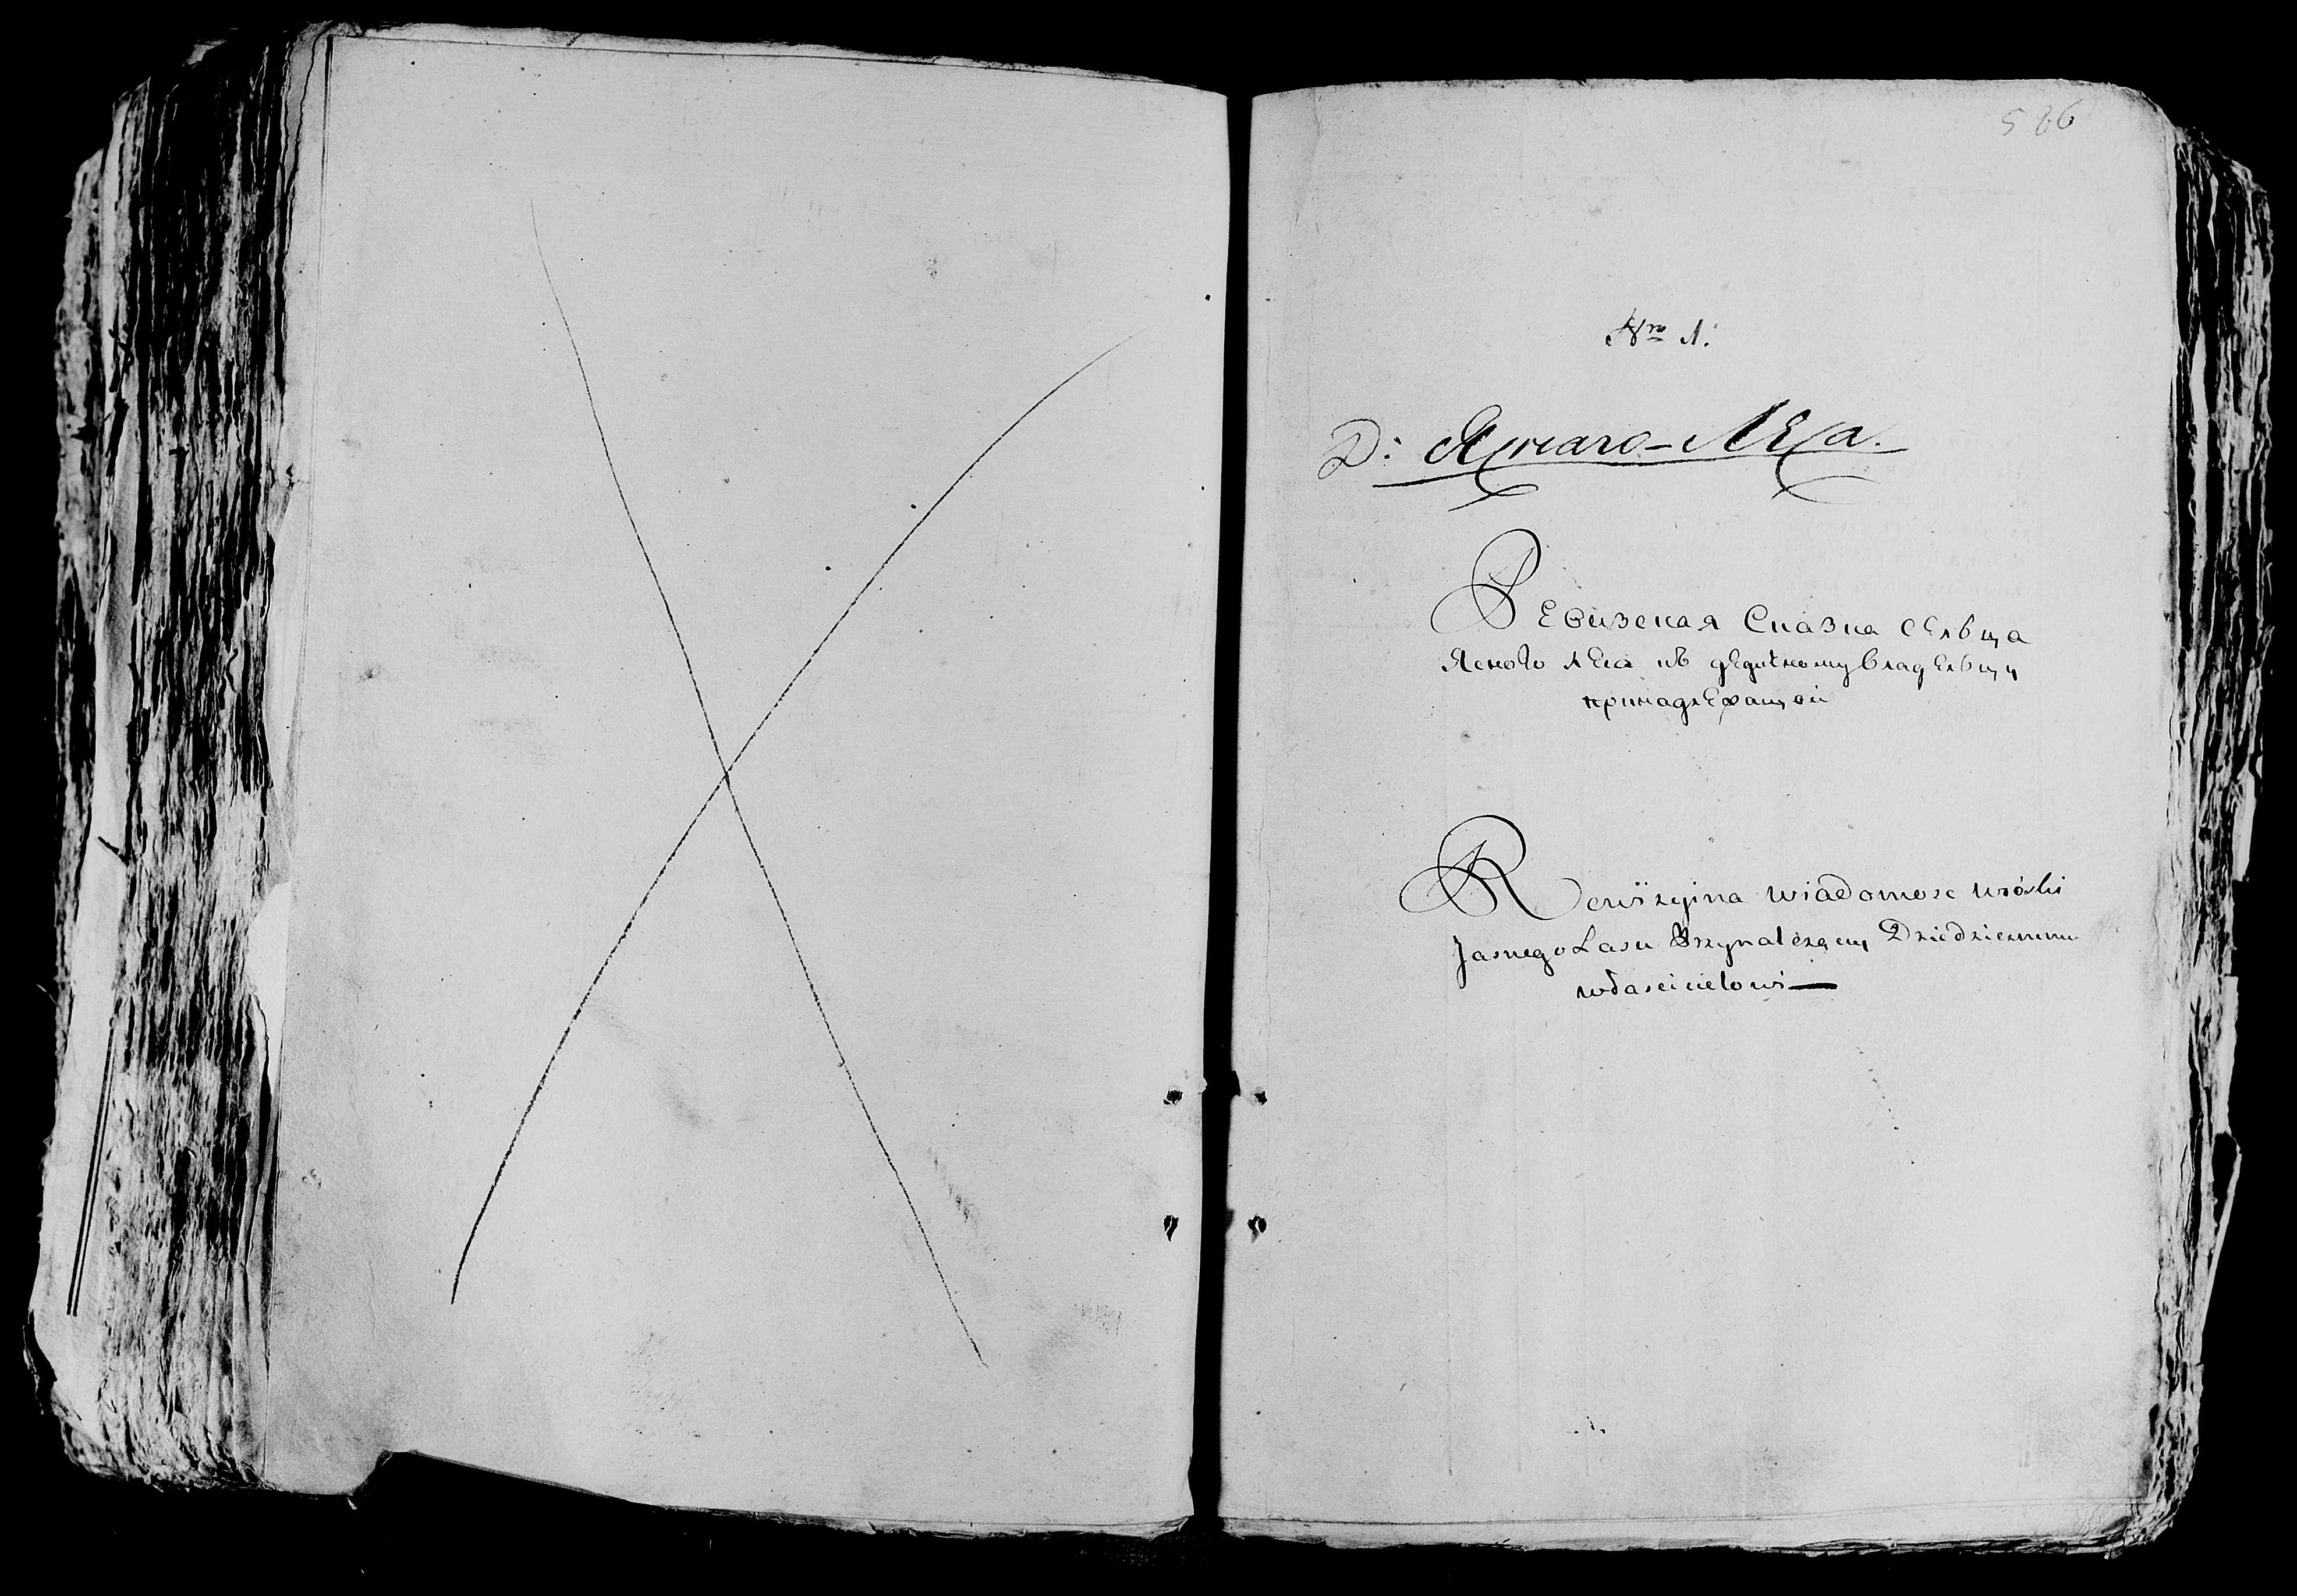 586
Nro 1:
D: Яснаго-Леса.
Ревизская Сказка селбца
Ясного леса кб дедичному владелбцу
принадлежащой
Rewizyina wiadomosc wioski
Jasnego Lasu Przynależący Dziedzicznemu
właścicielowi —